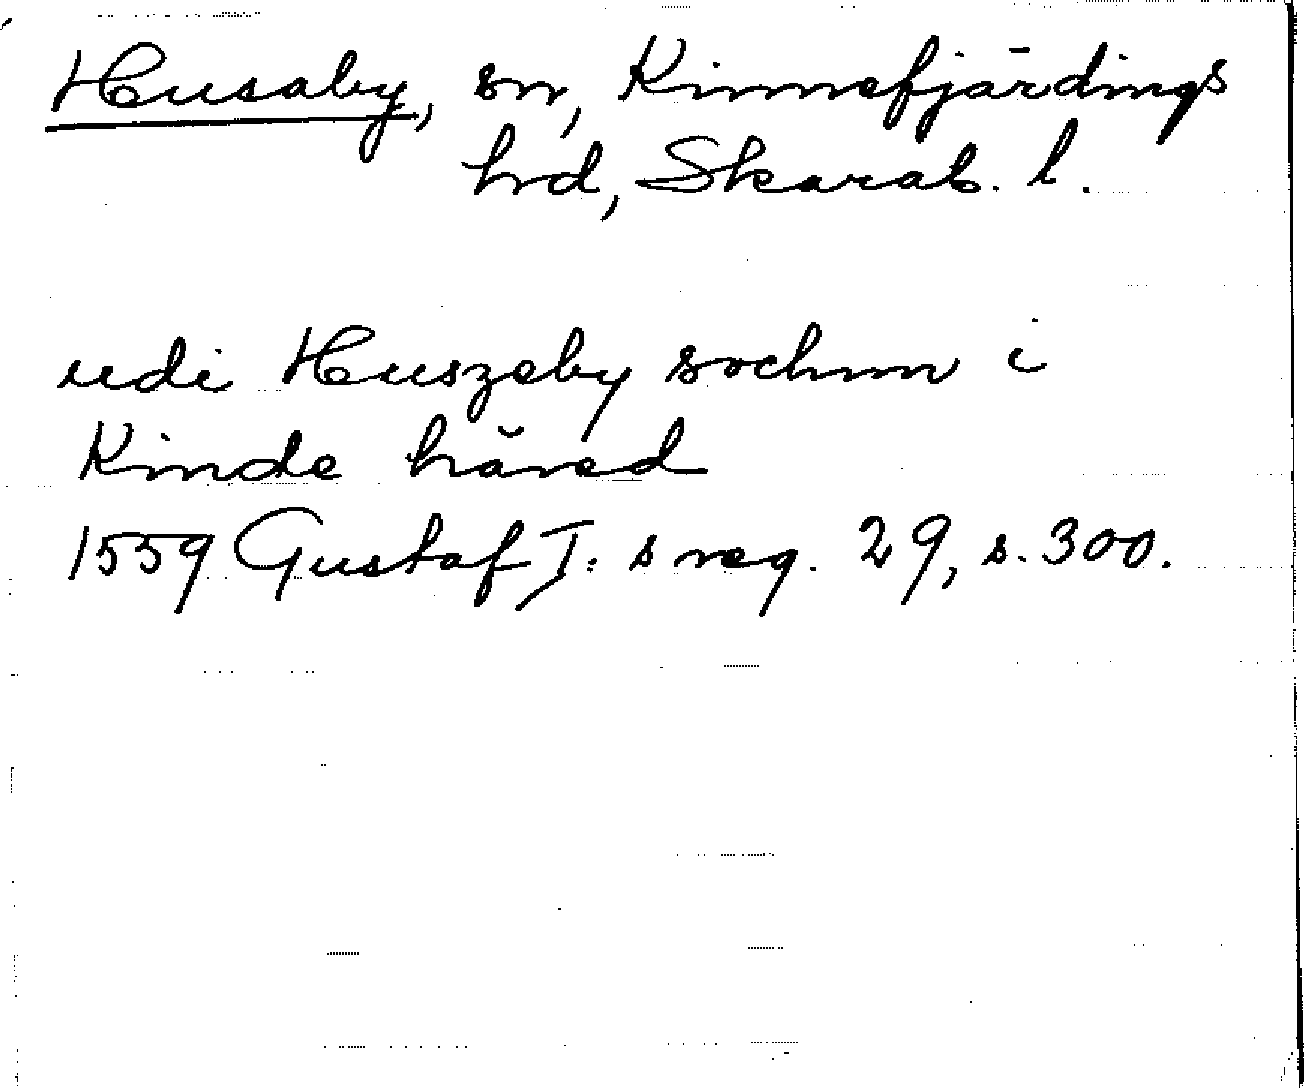 Husaby, sn, Kinnefjärdings
hrd, Skarab. l.
udi Huszeby sochnn i
Kinde häred
1559 Gustaf I:s reg. 29, s. 300.